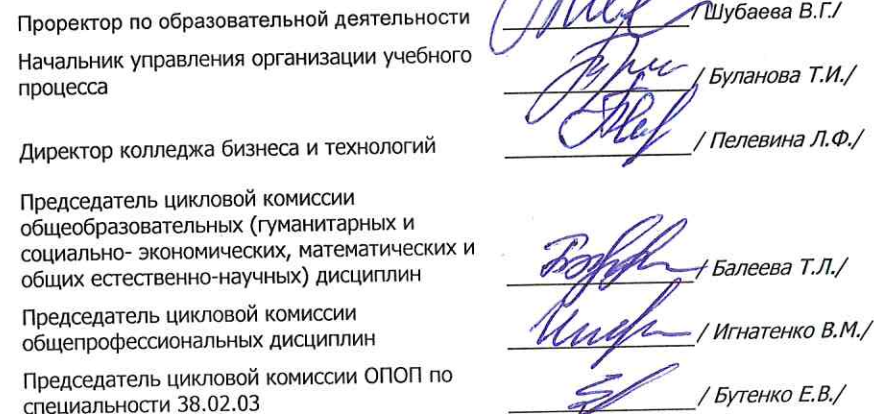 Проректор по образовательной деятельности /Шубаева В.Г./
Начальник управления организации учебного
процесса / Буланова Т.И./
Директор колледжа бизнеса и технологий / Пелевина Л.Ф./
Председатель цикловой комиссии
общеобразовательных (гуманитарных и
социально- экономических, математических и
общих естественно-научных) дисциплин / Балеева Т.Л./
Председатель цикловой комиссии
общепрофессиональных дисциплин / Игнатенко В.М./
Председатель цикловой комиссии ОПОП по
специальности 38.02.03 / Бутенко Е.В./